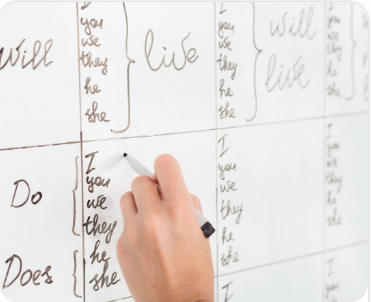 Will
I
you
we
they
he
she
live
I
you
we
they
he
she
will
live
I
you
we
they
he
she
Do
Does
I
you
we
they
he
she
I
you
we
they
he
she
I
you
we
they
he
she
I
I